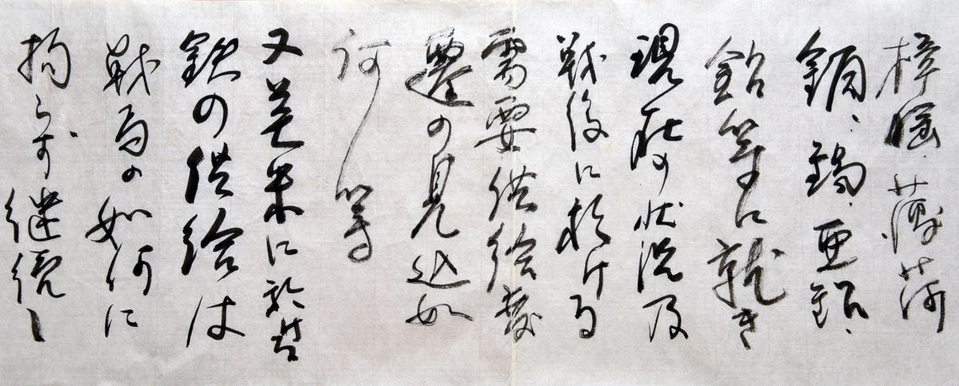 樟脳、薄荷
銅、錫、亜鉛、
鉛等に就き
現在の状況及
戦後に於ける
需要供給変
遷の見込如
何等
又英米に於ける
鉄の供給は
戦局の如何に
拘らず継続し